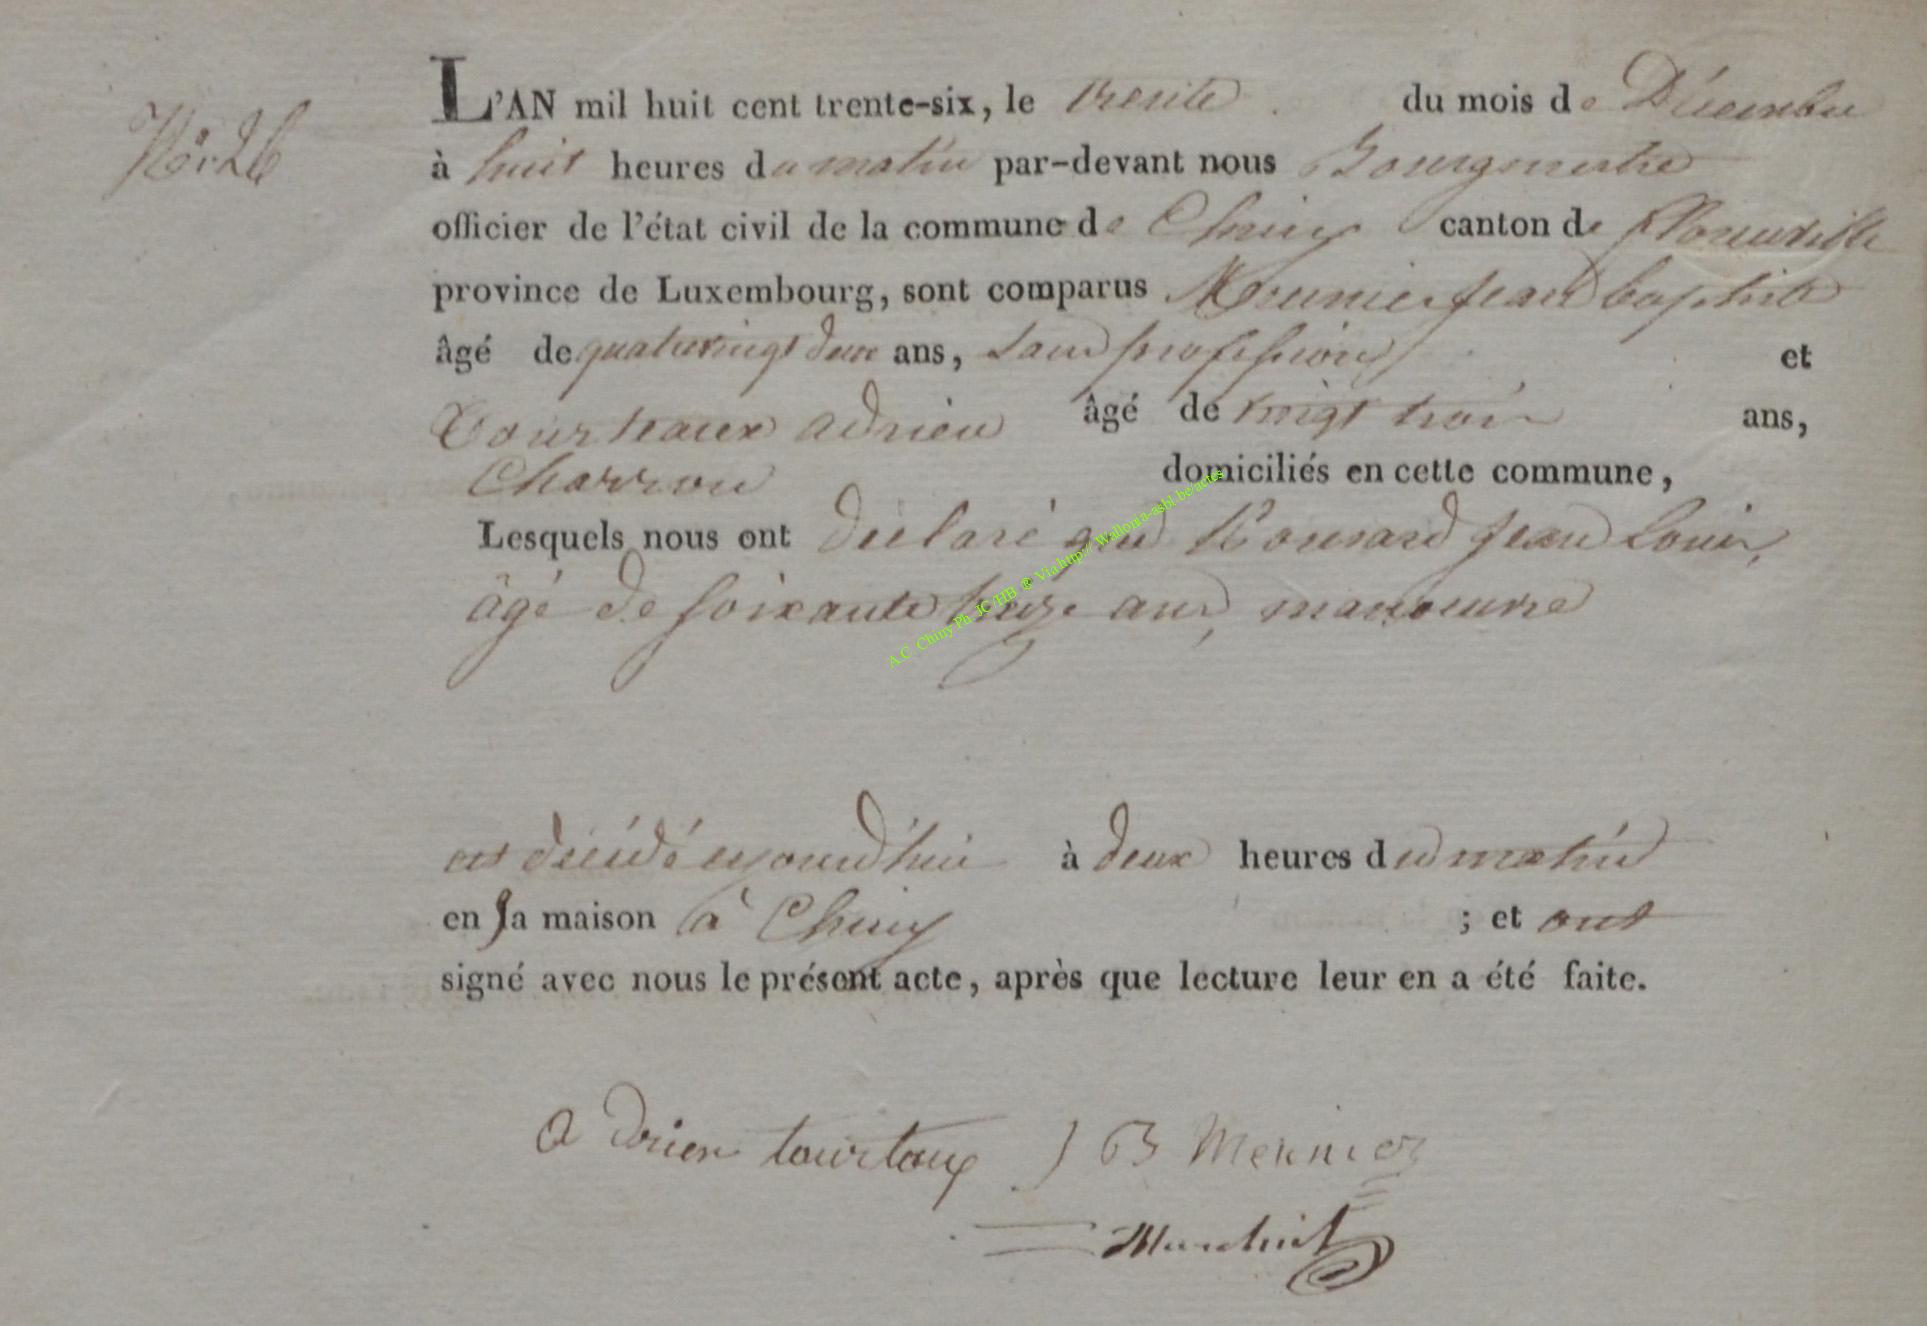 No 26
L'AN mil huit cent trente-six, le trente du mois de Décembre
à huit heures du matin par-devant nous Bourgmestre
officier de l'état civil de la commune de Chiny canton de
province de Luxembourg, sont comparus Meunier Jean baptiste
âgé de quatrevingt deux ans, sans profession et
Tourteaux adrien âgé de vingt trois ans,
Charron domiciliés en cette commune,
Lesquels nous ont déclaré que Jean Louis,
âgé de soixante treize ans, manoeuvre
est décédé aujourd'hui à deux heures du matin
en sa maison à Chiny ; et ont
signé avec nous le présent acte, après que lecture leur en a été faite.
Adrien tourtaux J B Meunier
A.C. Chiny Ph. JC/HB ® Via http:// Wallonia-asbl.be/actes